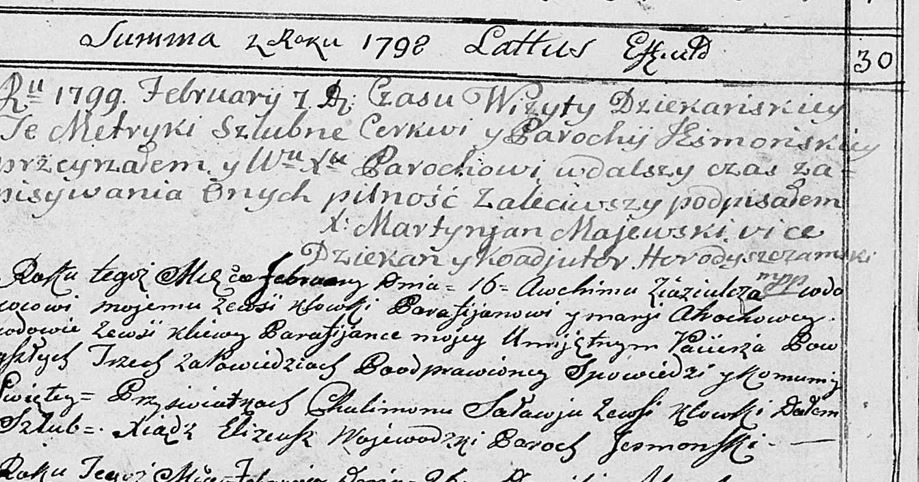 Summa z Roku 1798 Lattus Efficuld 30
Ru 1799. February 7 D: Czasu Wizyty Dziekańskiey
Te Metryki Szlubne Cerkwi y Parochij Jesmońskiey
przeyrzałem y Wu Xu Parochowi wdalszy czas za=
pisywania Onych pilność zaleciwszy podpisałem
X: Martynjan Majewski vice
Dziekan y Koadjutor Horodyszczanski
mpp
Roku tegoż Msca February Dnia = 16 = Awchimu wdo
wcowi mojemu Zewsi Kłowski Parafijanowi y maryi
wdowie Zewsi Parafijance mojey Umijętnym Pacierza Pow
yszłych Trzech Zapowiedziach Poodprawioney Spowiedzi y Komunij
Swiętey = Przy swiatkach Chalimonu Saławju Zewsi Kłowski Dałem
Szlub = Xiądz Elizeusz Wojewodzki Paroch Jesmonski
Roku Tegoż February Dnia = 26 =